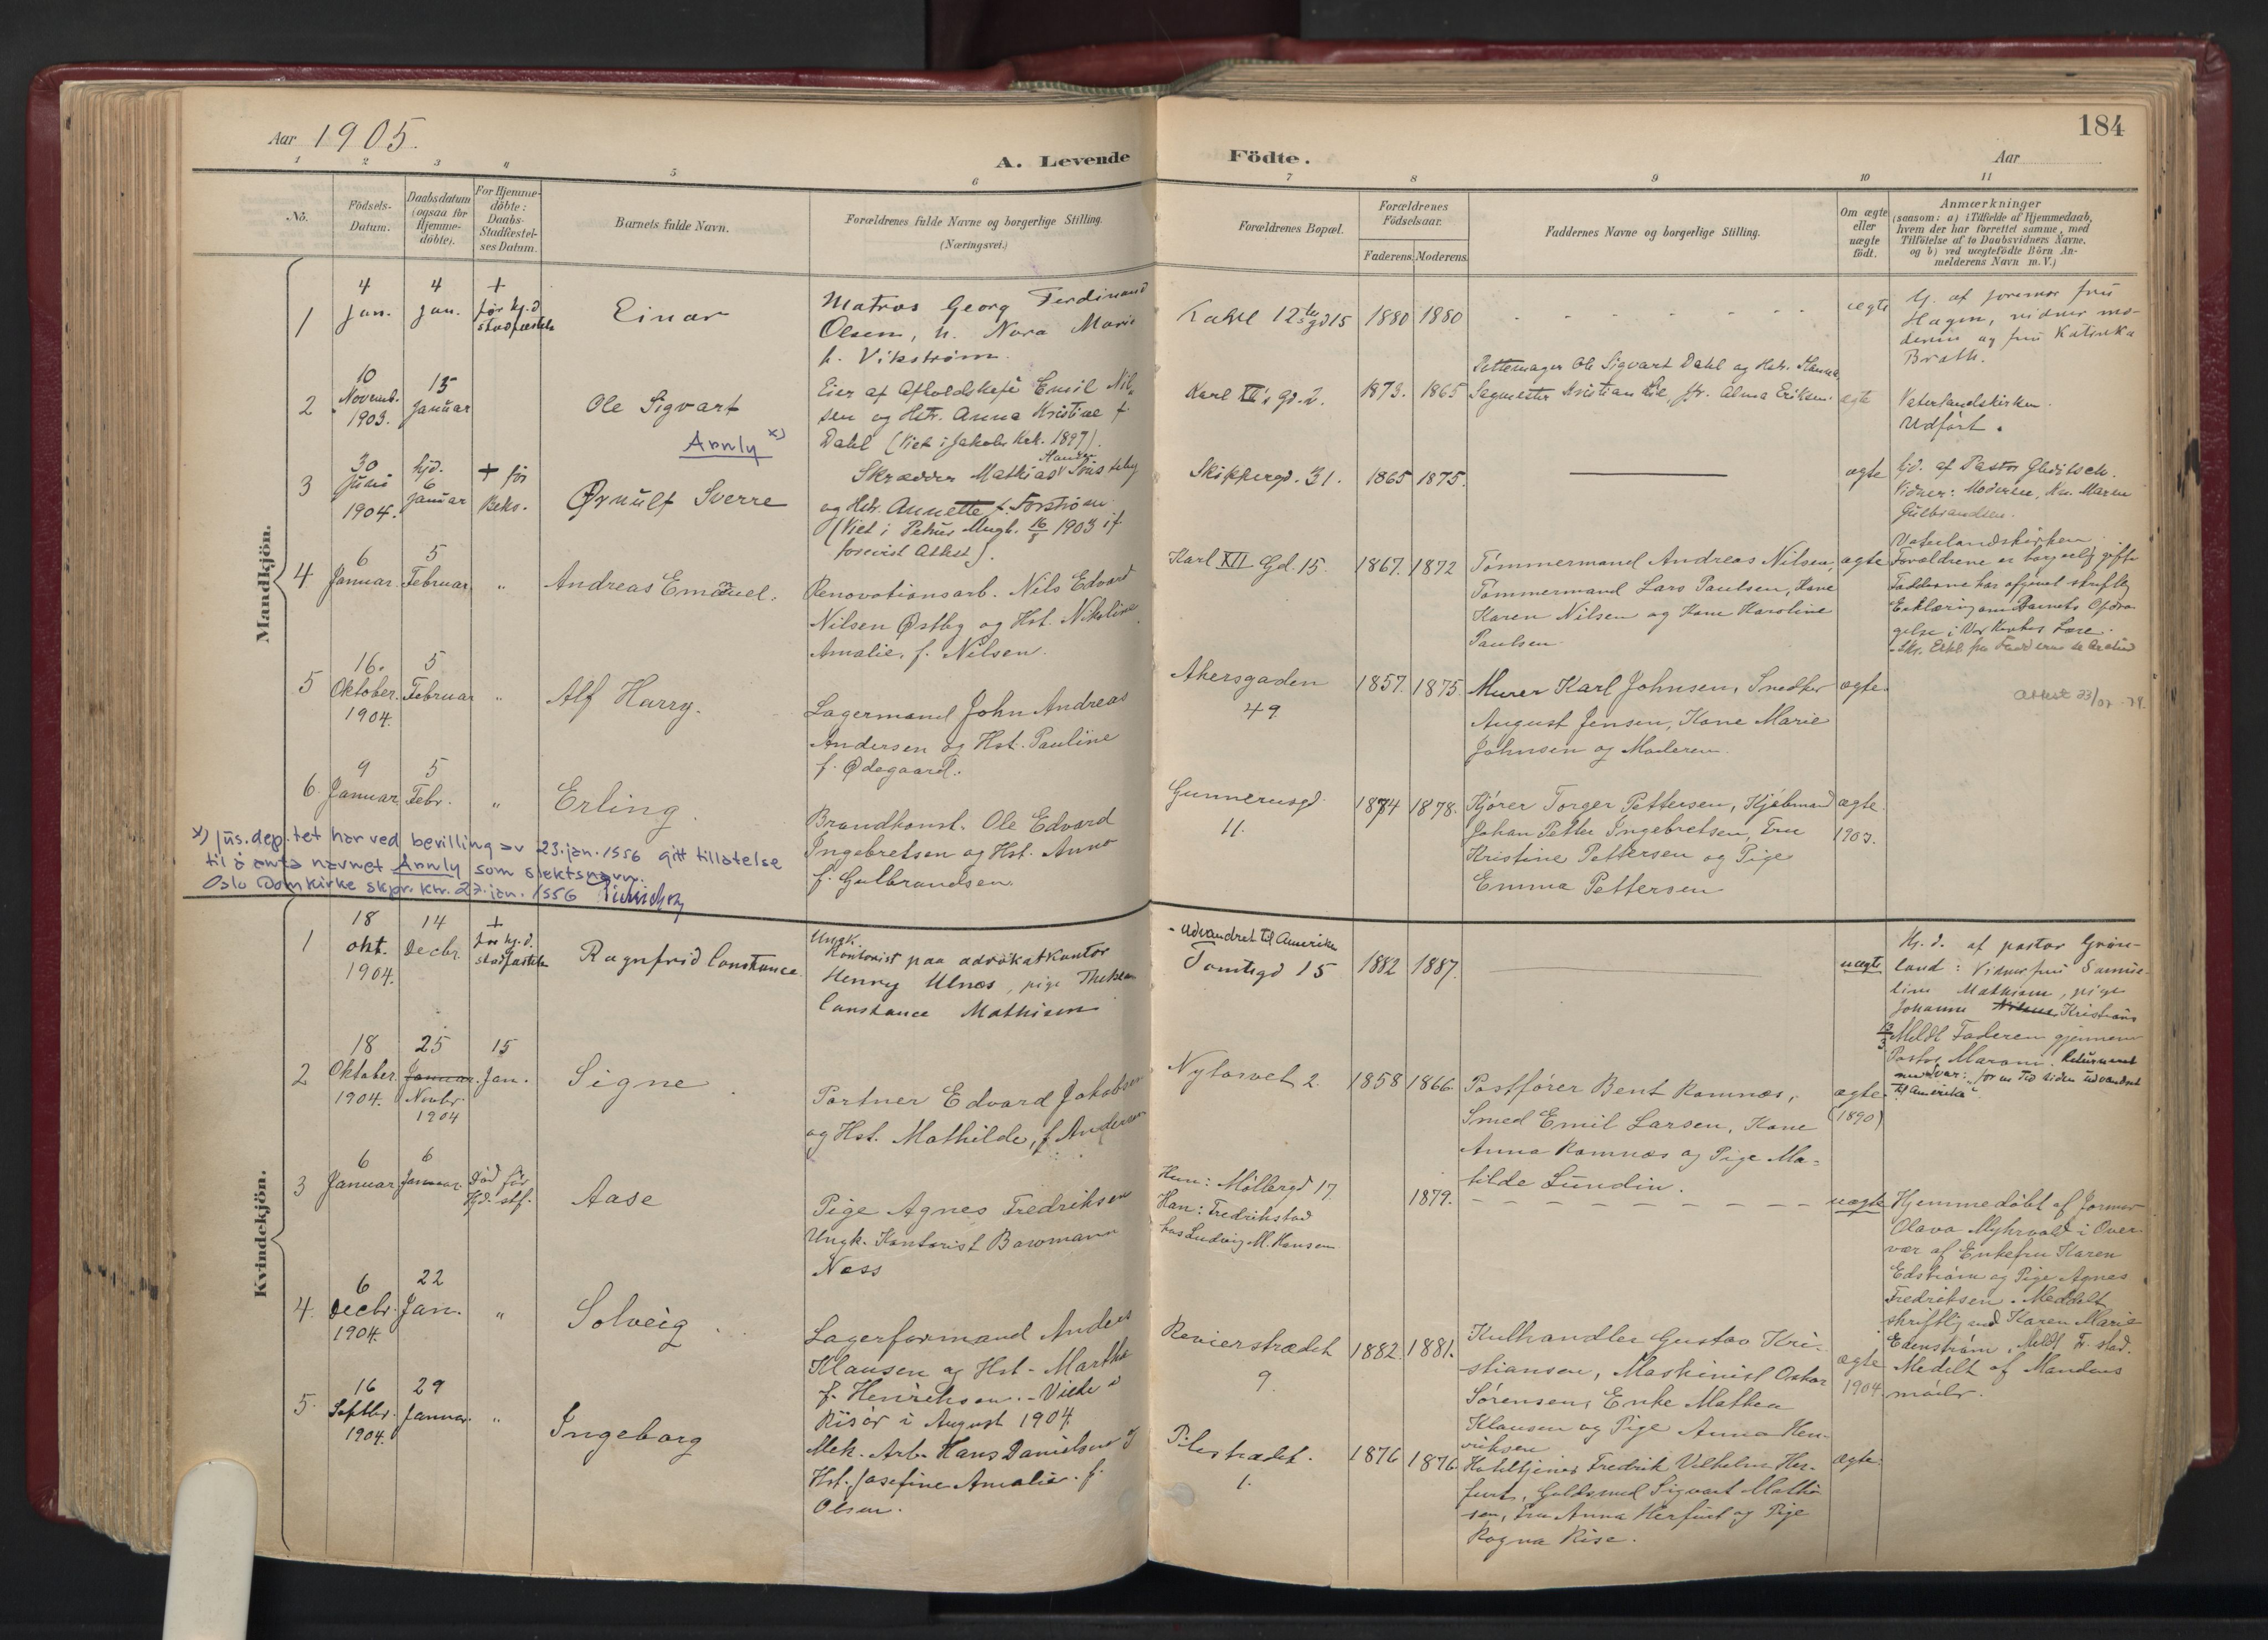 Aar 1905.
184
A. Levende Födte.
Aar
1 2 3 4 5 6 7 8 9 10 11
No.
Födsels-
Datum.
Daabsdatum
(ogsaa for
Hjemme-
döbte).
For Hjemme-
döbte:
Daabs-
Stadfæstel-
ses Datum.
Barnets fulde Navn.
Forældrenes fulde Navne og borgerlige Stilling.
(Næringsvei.)
Forældrenes Bopæl.
Forældrenes
Födselsaar.
Faderens. Moderens.
Faddernes Navne og borgerlige Stilling.
Om ægte
eller
uægte
födt.
Anmærkninger
(saasom: a) i Tilfælde af Hjemmedaab,
hvem der har forrettet samme, med
Tilföielse af to Daabsvidners Navne,
og b) ved uægtefödte Börn An-
melderens Navn m. V.)
Mandkjön.
1
4
Jan.
4
Jan.
+
før hj.d.
stadfæstelse
Einar
Matros Georg Ferdinand
Olsen, h. Nora Marie
f. Vikstrøm.
Karl 12tes gd 15
1880 1880
ægte
Hj. af jormor fru
Hagen, vidner mo-
deren og fru Katinka
Brath.
2
10
Novemb.
1903.
15
Januar
Ole Sigvart
Arnly x)
Eier af Afholdskafé Emil Nil-
sen og Hstr. Anna Kristine f.
Dahl (Viet i Jakobs Kirk. 1897).
Karl XII's gd. 2.
1873. 1865
Pottemager Ole Sigvart Dahl og Hstr. Hanna,
Sagmester Kristian Lie, fr. Alma Eriksen.
ægte
Vaterlandskirken.
Udført.
3
30
Juni
1904.
hjd.
6
Januar
+ før
Beks.
Ørnulf Sverre
Skrædder Mathias Hansen
og Hstr. Annette f. Forstrøm
(Viet i Petrus Mngh. 16/5 1903 if.
forevist Attest).
Skippergd. 31.
1865 1875.
ægte
hjd. af Pastor Gleditsch.
Vidner: Moderen, Kn. Maren
Gulbrandsen.
4
6
Januar.
5
Februar
"
Andreas Emanuel.
Renovationsarb. Nils Edvard
Nilsen Østby og Hst. Nikoline
Amalie, f. Nilsen.
Karl XII Gd. 15.
1867. 1872
Tømmermand Andreas Nilsen,
Tømmermand Lars Paulsen, Kone
Karen Nilsen og Kone Karoline
Paulsen.
ægte
Vaterlandskirken.
Forældrene er borgerlig gifte
Fadderne har afgivet skriftlig
Erklæring om Barnets Opdra-
gelse i Vor Kirkes Lære.
5
16.
Oktober.
1904.
5
Februar
"
Alf Harry.
Lagermand John Andreas
Andersen og Hst. Pauline
f. Ødegaard.
Akersgaden
49.
1857. 1875
Murer Karl Johnsen, Snedker
August Jensen, Kone Marie
Johnsen og Moderen.
ægte.
Attest 23/
6.
9
Januar
5
Febr.
"
Erling.
Brandkonst. Ole Edvard
Ingebretsen og Hst. Anna
f. Gulbrandsen.
Gunnerusgd.
11.
1874 1878.
Kjører Torger Pettersen, Kjøbmand
Johan Petter Ingebretsen, Fru
Kristine Pettersen og Pige
Emma Pettersen
ægte.
1903.
x) Jus.dep.tet har ved bevilling av 23. jan. 1956 gitt tillatelse
til å anta navnet Arnly som slektsnavn.
Oslo Domkirke skpr. ktr. 27. jan. 1956
Kvindekjön.
1
18
okt.
1904.
14
Decbr.
+
før hj.d.
stadfæstelse
Ragnfrid Constance.
Ungk.
Kontorist paa advokatkontor
Henry Ulnæs, pige Thekla
Constance Mathisen
- Udvandret til Amerika
Tomtegd 15
1882 1887.
uægte
Hj. d. af pastor Grøn-
land: Vidner fru Samue-
line Mathisen, pige
Johanne Nilsen Kristians
Meldt Faderen gjennem
Pastor Maroni. Returneret
med svar: "for en Tid siden udvandret
til Amerika".
2
18
Oktober.
1904.
25
Januar.
Novbr.
1904
15
Jan.
Signe
Portner Edvard Jakobsen
og Hst. Mathilde, f. Andersen
Nytorvet 2.
1858 1866.
Postfører Bent Ramnæs,
Smed Emil Larsen, Kone
Anna Ramnæs og Pige Ma-
tilde Lundin.
ægte.
(1890)
3
6
Januar
6
Januar.
Død før
Hjd. stf.
Aase
Pige Agnes Fredriksen
Ungk. Kontorist Bowmann
Næss
Hun: Møllergd 17.
Han: Fredrikstad
hos Ludvig M. Hansen.
1879.
uægte
Hjemmedøbt af Jormor
Olava Myhrvold i Over-
vær af Enkefru Karen
Edstrøm og Pige Agnes
Fredriksen. Meddelt
skriftlig ved Karen Marie
Edenstrøm. Meldt F. stad.
4.
6
Decbr.
1904.
22
Jan.
"
Solveig.
Lagerformand Anders
Klausen og Hst. Martha
f. Henriksen. - Viede i
Risør i August 1904.
Revierstrædet
9.
1882. 1881.
Kulhandler Gustav Kri-
stiansen, Maskinist Oskar
Sørensen, Enke Mathea
Klausen og Pige Anna Hen-
riksen
ægte
1904.
Medelt af Mandens
moder.
5.
16
Septbr.
1904.
29
Januar.
"
Ingeborg
Mek. Arb. Hans Danielsen
Hst. Josefine Amalie. f.
Olsen.
Pilestrædet.
1.
1876 1876
Hoteltjener Fredrik Vilhelm Her-
furt, Guldsmed Sigvart Mathi-
sen, Fru Anna Herfurt og Pige
Ragna Rise.
ægte.